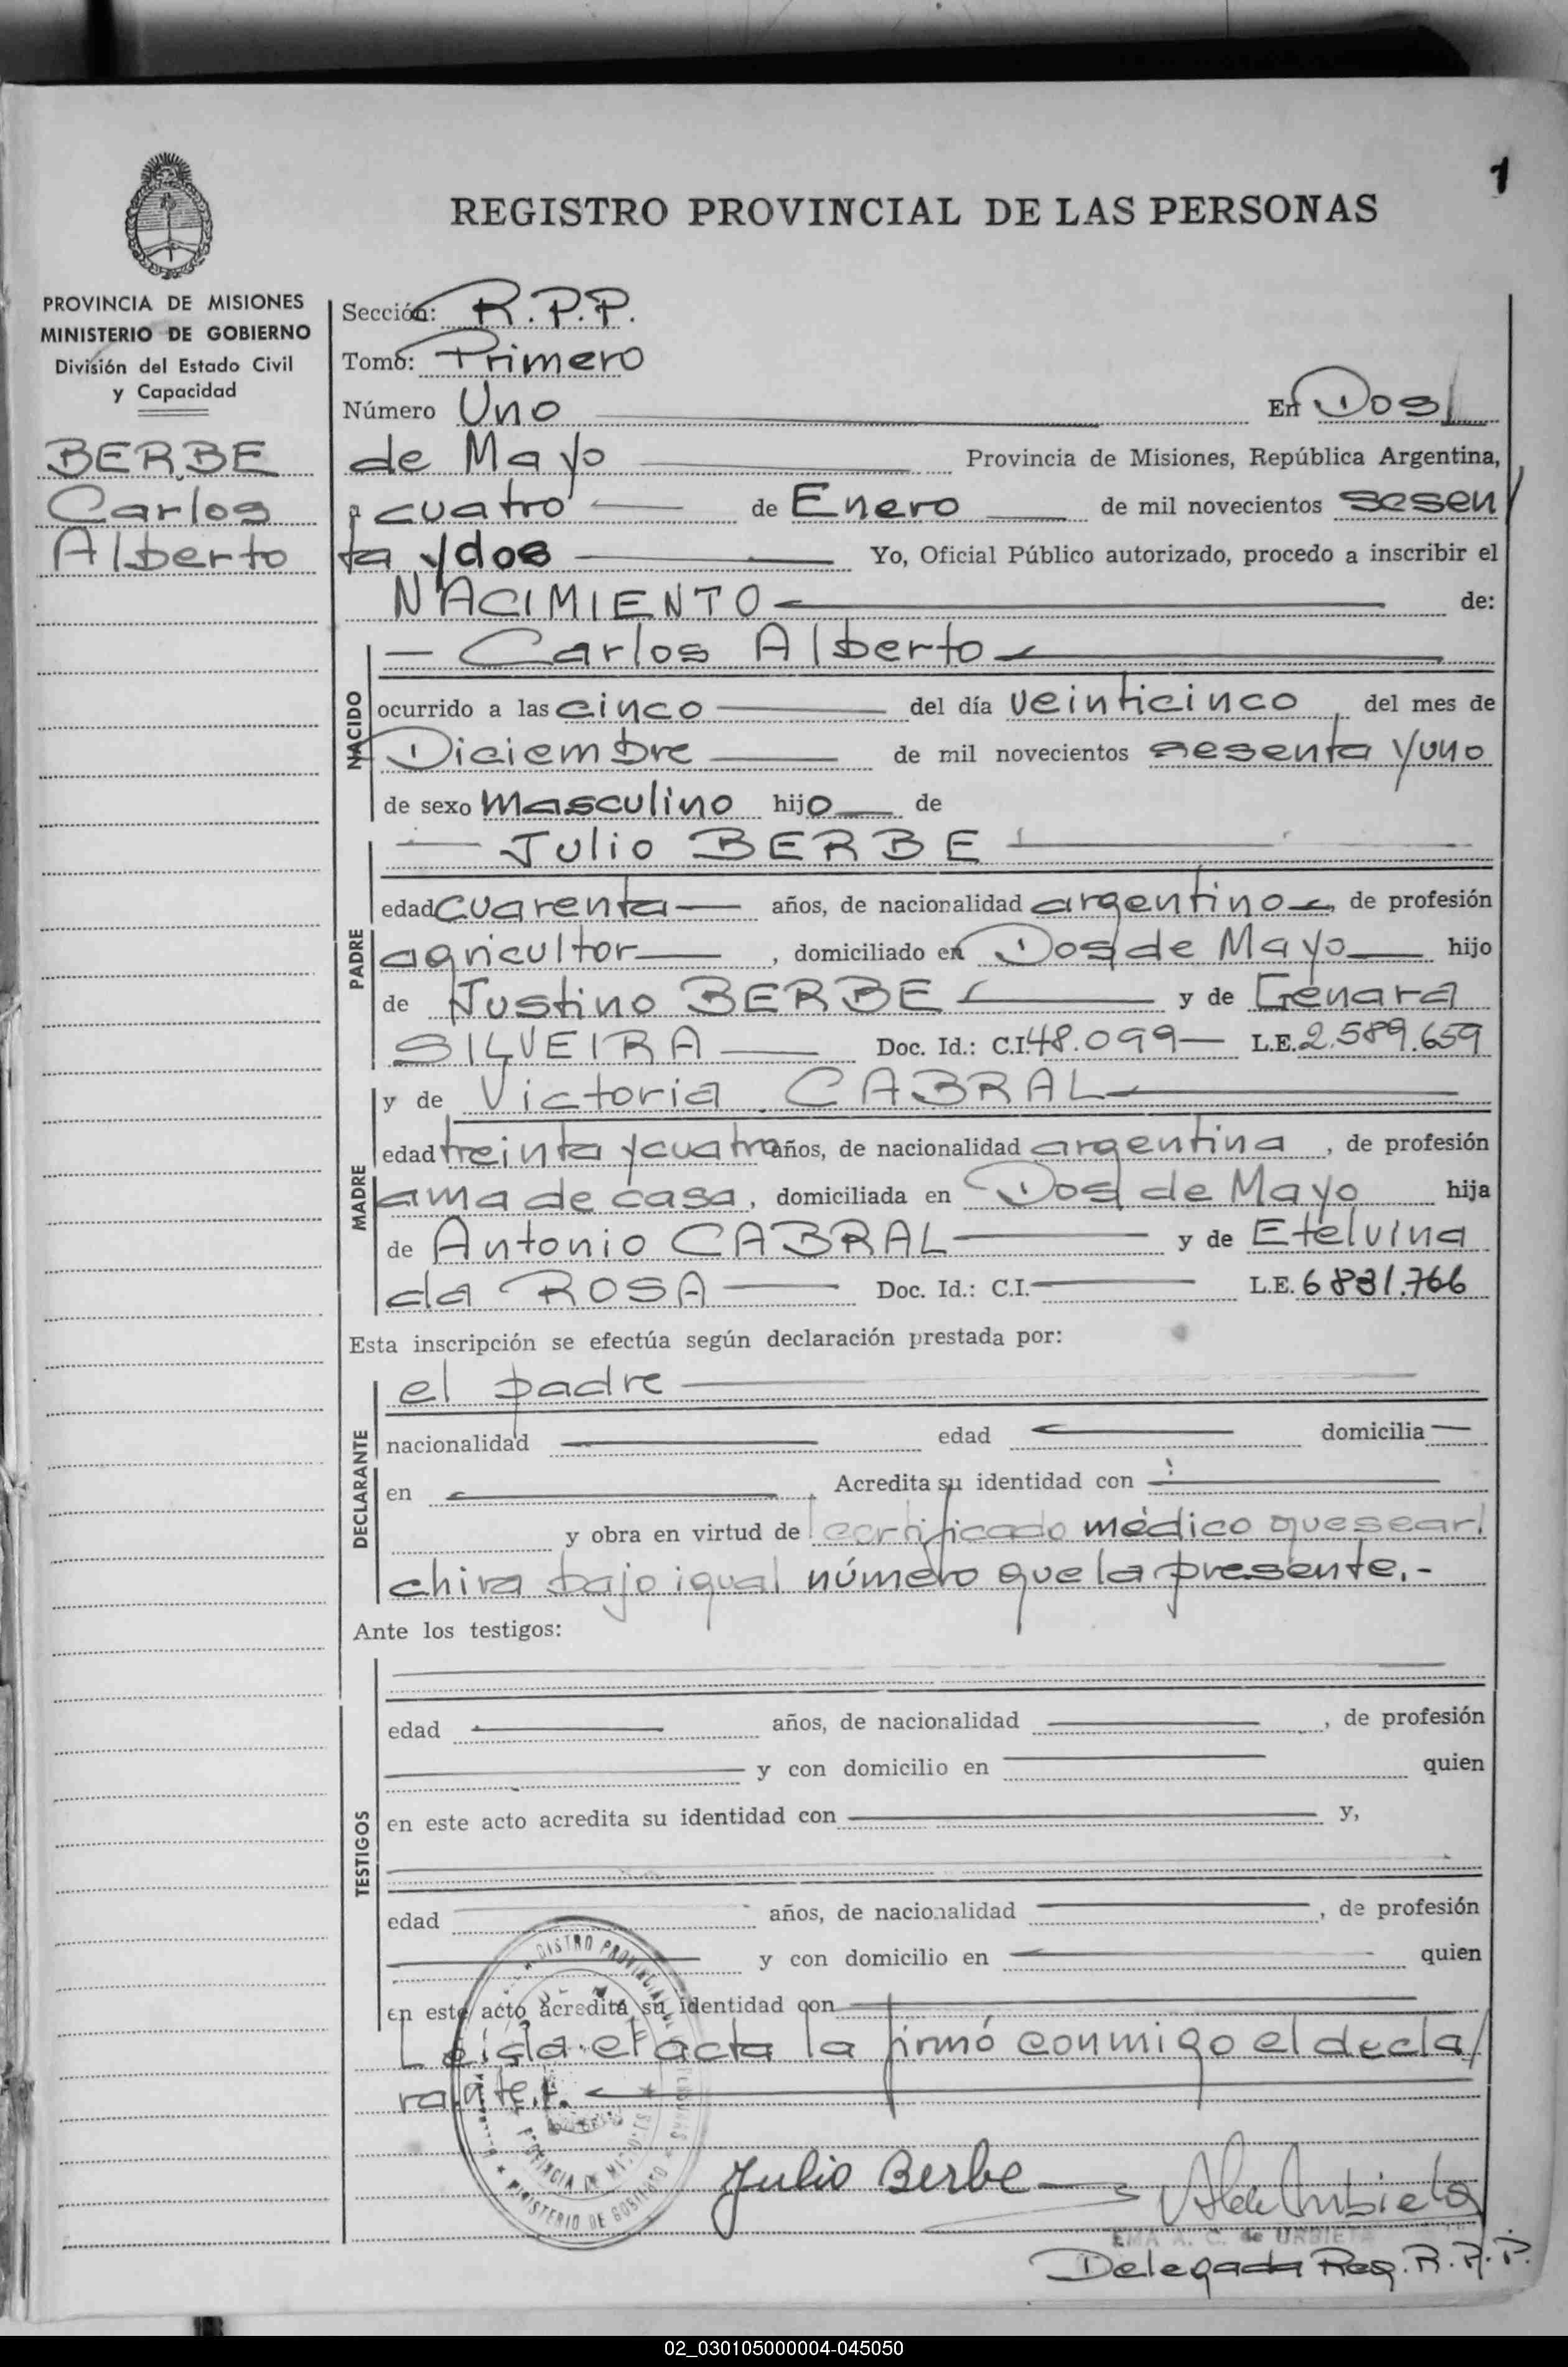 1
REGISTRO PROVINCIAL DE LAS PERSONAS
PROVINCIA DE MISIONES
MINISTERIO DE GOBIERNO
División del Estado Civil
y Capacidad
BERBE
Carlos
Alberto
Sección: R.P.P.
Tomo: Primero
Número Uno En Dos
de Mayo Provincia de Misiones, República Argentina,
a cuatro de Enero de mil novecientos sesen
ta y dos Yo, Oficial Público autorizado, procedo a inscribir el
NACIMIENTO de:
NACIDO
Carlos Alberto
ocurrido a las cinco del día veinticinco, del mes de
Diciembre de mil novecientos sesenta y uno
de sexo masculino hijo de
PADRE
Julio BERBE
edad cuarenta años, de nacionalidad argentino, de profesión
agricultor, domiciliado en Dos de Mayo hijo
de Justino BERBE y de Genara
SILVEIRA Doc. Id.: C.I. 48.099 L.E. 2.589.659
MADRE
y de Victoria CABRAL
edad treinta y cuatro años, de nacionalidad argentina, de profesión
ama de casa, domiciliada en Dos de Mayo hija
de Antonio CABRAL y de Etelvina
da ROSA Doc. Id.: C.I. L.E. 6831.766
Esta inscripción se efectúa según declaración prestada por:
DECLARANTE
el padre
nacionalidad edad domicilia
en Acredita su identidad con
y obra en virtud de certificado médico que se ar
chiva bajo igual número que la presente.-
Ante los testigos:
TESTIGOS
edad años, de nacionalidad , de profesión
y con domicilio en quien
en este acto acredita su identidad con y,
edad años, de nacionalidad , de profesión
y con domicilio en quien
en este acto acredita su identidad con
Leída el acta la firmó conmigo el decla/
rante.
REGISTRO PROVINCIAL DE LAS PERSONAS
PROVINCIA DE MISIONES
MINISTERIO DE GOBIERNO
Julio Berbe
EMA A. C. de URBIETA
Delegada Reg. R.P.P.
02_030105000004-045050